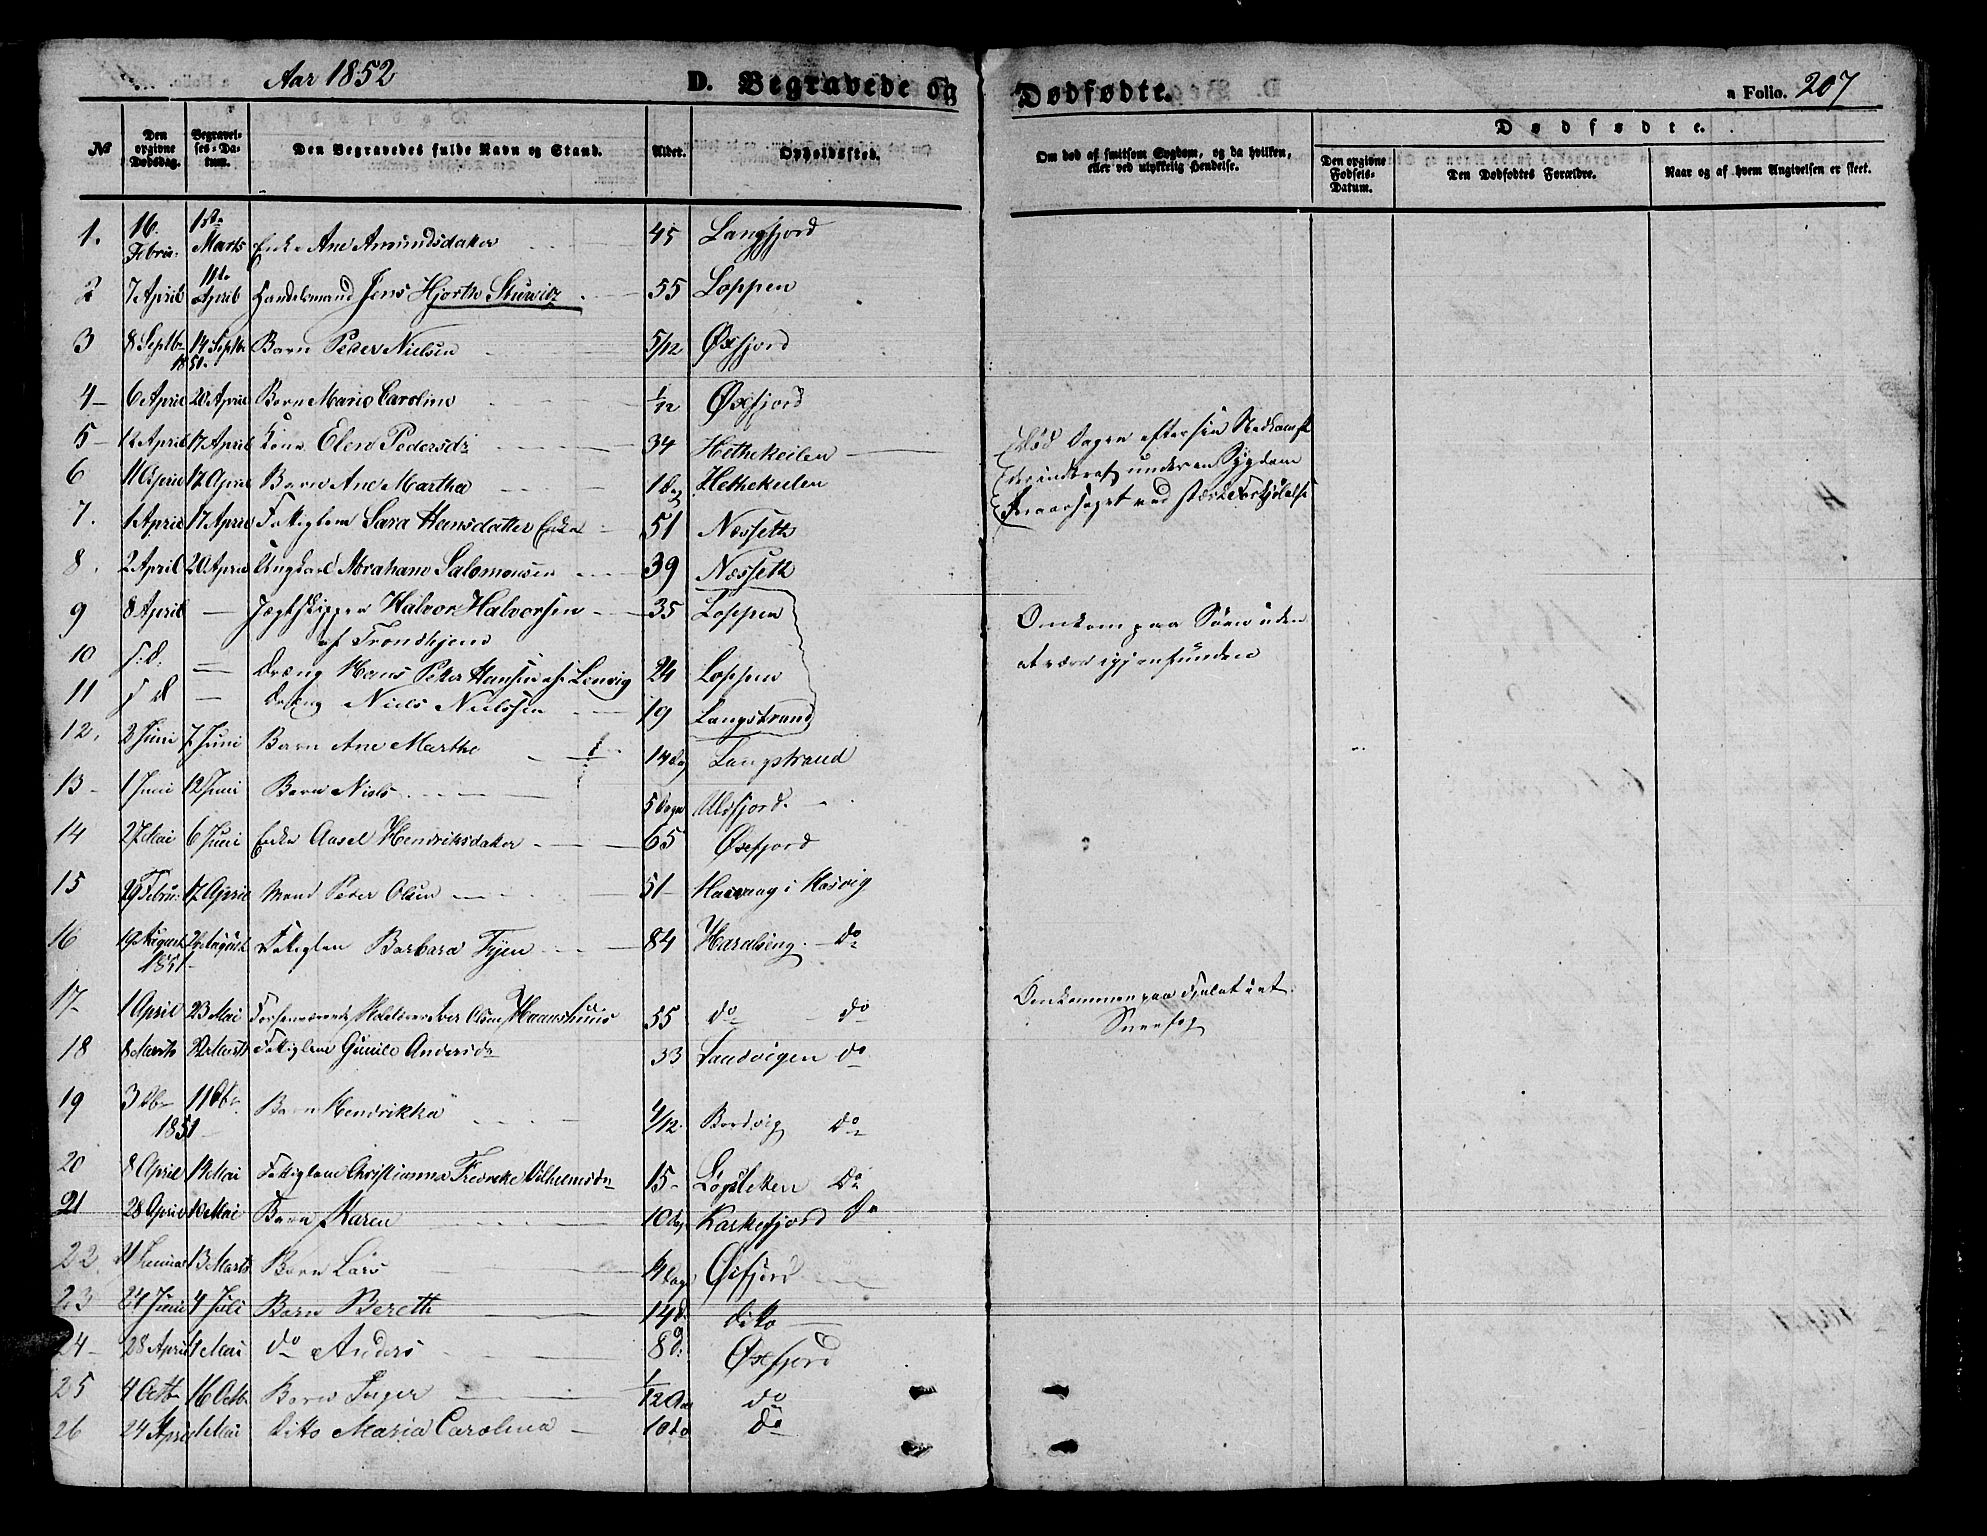 Aar 1852 D. Begravede og Dødfødte. a Folio. 207
No Den opgivne Dødsdag. Begravelses-Datum. Den Begravedes fulde Navn og Stand. Alder. Opholdssted. Om død af smitsom Sygdom, og da hvilken, eller ved ulykkelig Hendelse. Dødfødte. Den opgivne Fødsels-Datum. Den Dødfødtes Forældre. Naar og af hvem Angivelsen er skeet.
1. 16. Febru: 1ste Marts Enke Ane Amundsdatter 45 Langfjord
2 7 April 11te April Handelsmand Jens Hjorth Stuwitz 55 Loppen
3 8 Septbr 14 Septbr 1851. Barn Peder Nielsen 5/12 Øxfjord
4 6 April 20 April Barn Marie Caroline 1/12 Øxfjord
5 12 April 17 April Kone Elen Pedersdr 34 Hettekeilen Død Dagen efter sin Nedkomst
6 11 April 17 April Barn Ane Martha 1 Dag Hettekeilen under en Sygdom
7. 1 April 17 April Fattiglem Sara Hansdatter Enke 51 Næsseth foraarsaget ved stærk Forkjølelse
8. 2 April 20 April Ungkarl Abraham Salomonsen 39 Næsseth
9 8 April Jægtskipper Halvor Halvorsen 35 Loppen Omkom paa Søen uden
af Trondhjem
10 s: d: Dreng Hans Peter Hansen af Lenvig 24 Loppen at være igjenfunden
11 s d Dreng Niels Nielsen 19 Langstrand
12. 2 Juni 7. Juni Barn Ane Marthe 14 Dag Langstrand
13 1 Juni 12 Juni Barn Niels 5 Dage Ulsfjord
14 27 Mai 6 Juni Enke Aasel Hendriksdatter 65 Øxfjord
15 29 Febru: 17 April Mand Peder Olsen 51 Hasvaag i Hasvig
16 19 August 26 August 1851 Fattiglem Barbara Fyen 84 do
17 1 April 23 Mai Iver Olsen Haanshuus 55 do do Omkommen paa Fjeldet i et
Sneefog
18 8 Marts 22 Marts Fattiglem Gunile Andersdr 33 Sandvigen do
19 3 11 1851 Barn Hendrikka 4/12 Bordvig do
20 8 April 14 Mai Fattiglem Christianna Fredrikke Vilhelmsdr 15 do
21 28 April Mai Barn Karen 10 dag Karkefjord do
22. 21 Januar 13 Marts Barn Lars Dag Øxfjord
23 24 Juni 4 Juli Barn Bereth 14 d: ditto
24 28 April 4 Mai do Anders 8 d: Øxfjord
25 4 Octb 16 Octb Barn Inger 1/12 Aar do
26 24 April Mai Ditto Maria Carolina 10 do do